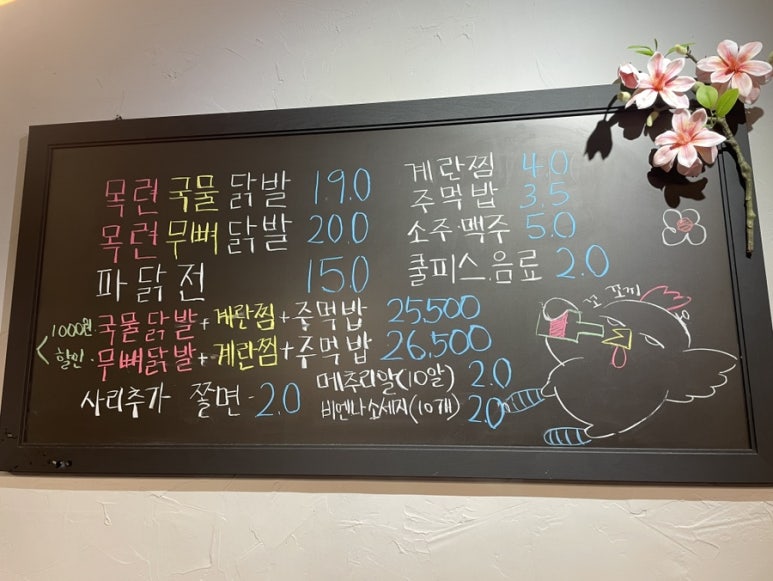 목련 국물 닭발 19.0
목련 무뼈 닭발 20.0
파닭전 15.0
계란찜 4.0
주먹밥 3.5
소주·맥주 5.0
쿨피스.음료 2.0
1000원 할인
국물닭발+계란찜+주먹밥 25,500
무뼈닭발+계란찜+주먹밥 26,500
사리추가 쫄면 - 2.0
메추리알(10알) 2.0
비엔나소세지(10개) 2.0
꼬 꼬끼